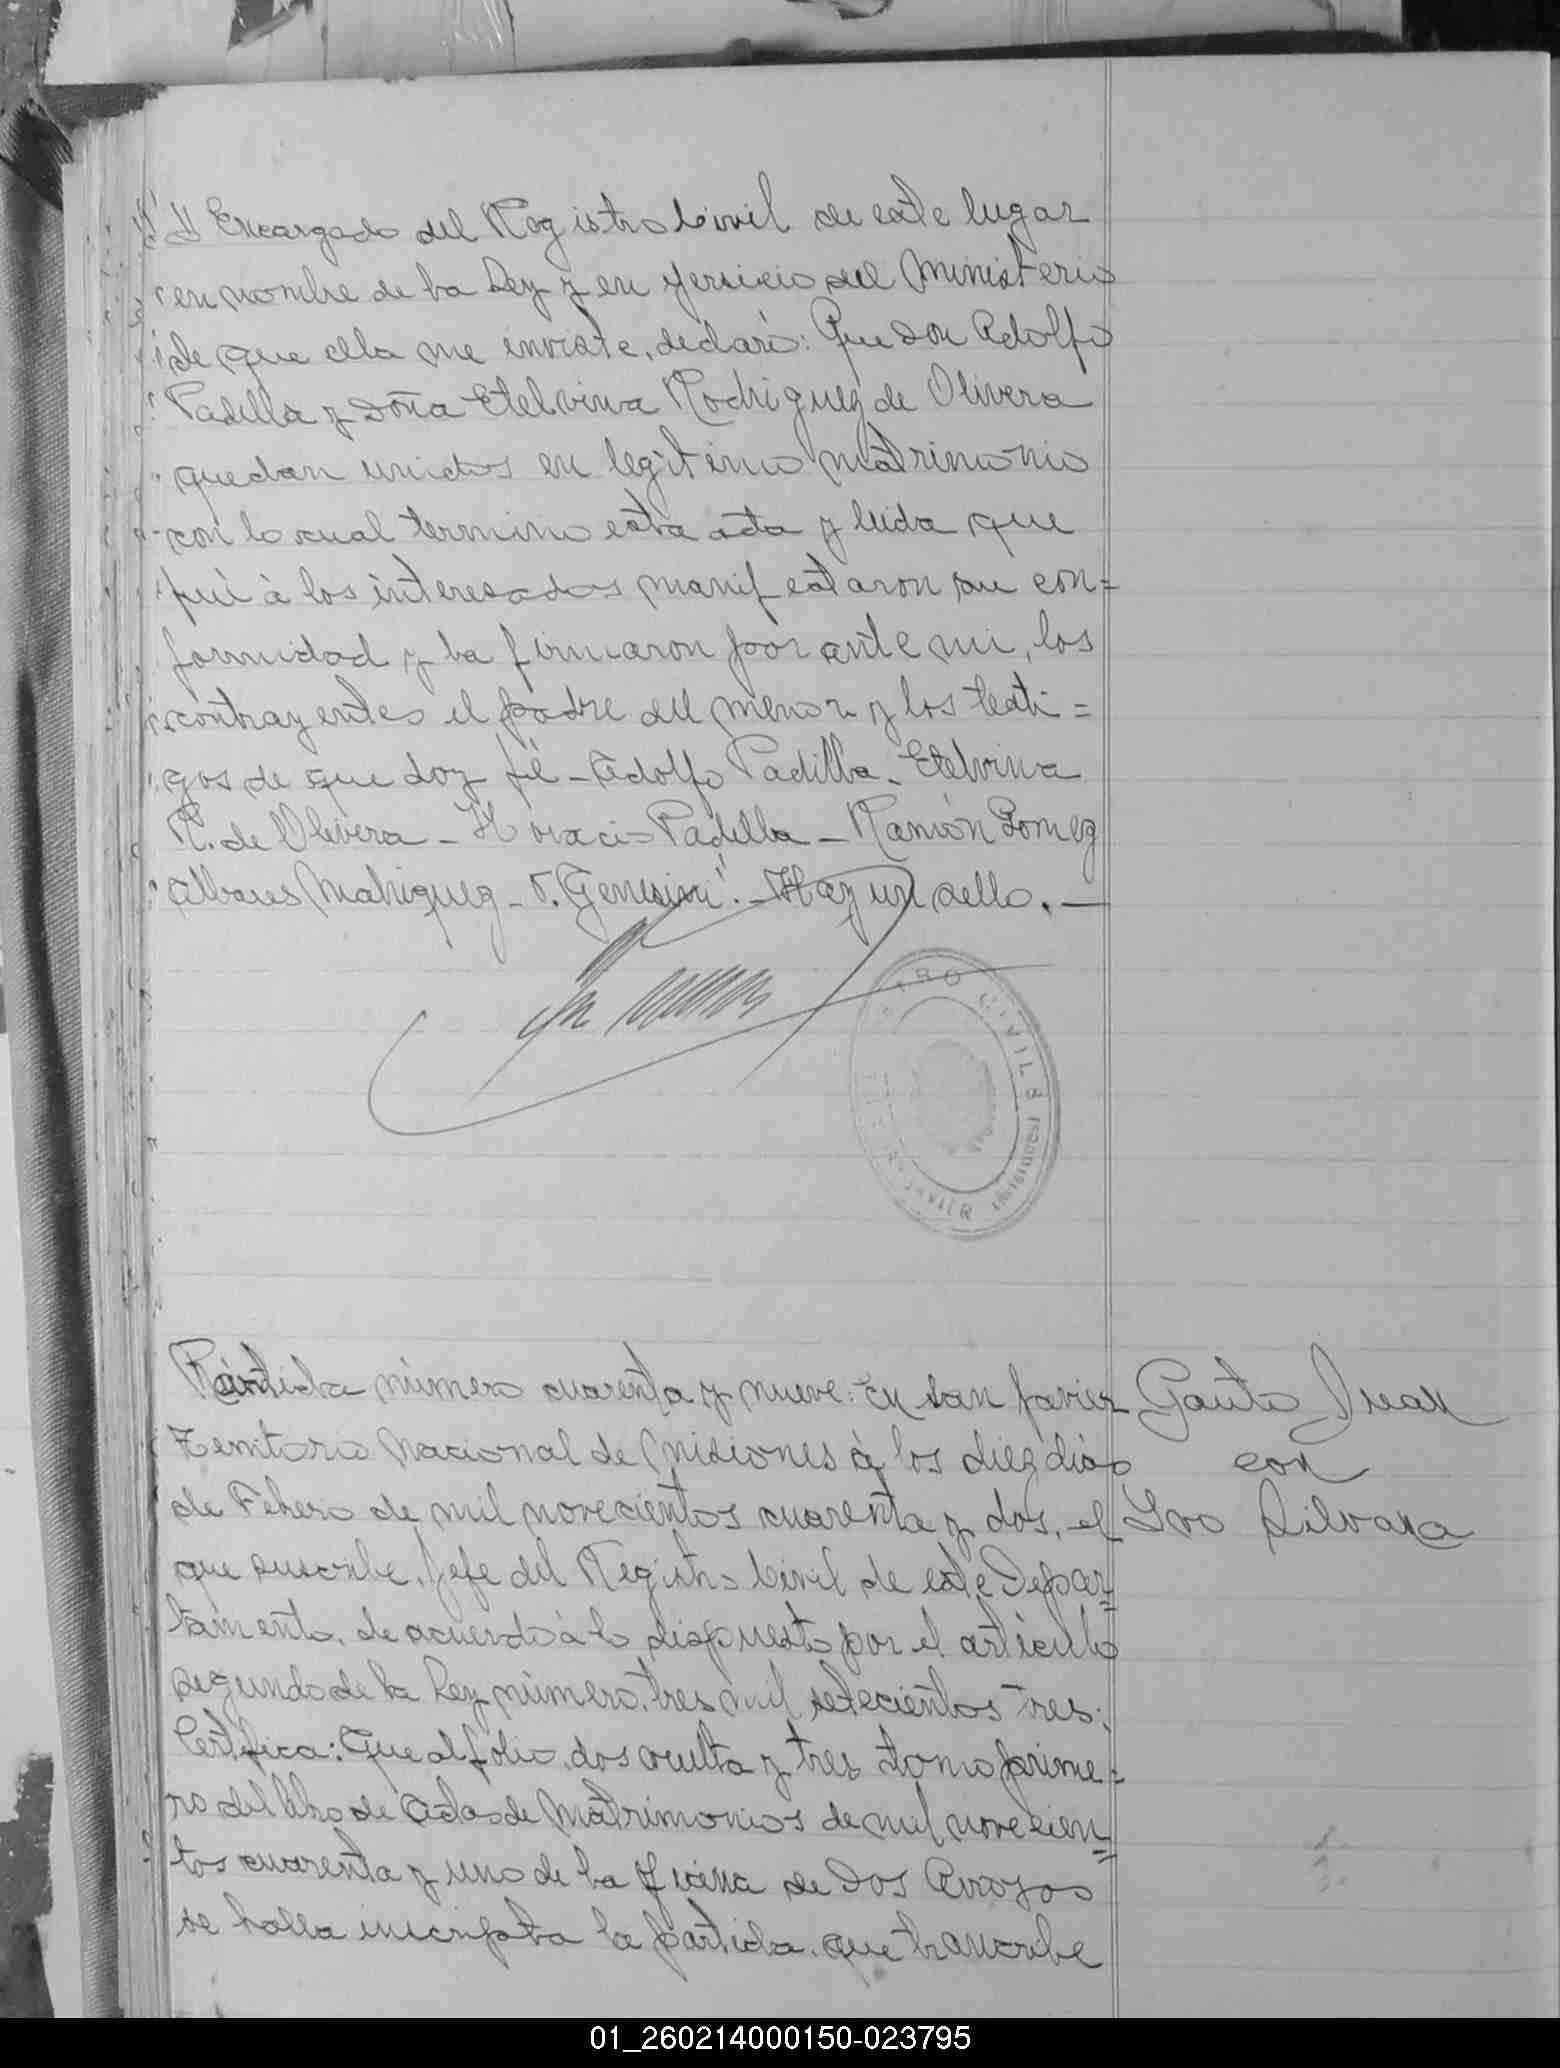 el Encargado del Registro Civil de este lugar
en nombre de la Ley y en yersicio del Ministerio
de que ella me inviste, declaró: Que don Adolfo
Padilla y doña Etelvina Rodriguez de Olivera
quedan unidos en legitimo matrimonio
con lo cual termino esta acta y leida que
fué à los interesados manifestaron su con=
formidad y la firmaron por ante mi, los
contrayentes el padre del menor y los testi=
gos de que doy fé - Adolfo Padilla - Etelvina
R. de Olivera - Horacio Padilla - Ramón Gomez
Albares - Hay un sello. -
REGISTRO CIVIL
JAVIER (MISIONES)
Partida número cuarenta y nueve: En San Javier
Territorio Nacional de Misiones à los diez dias
de Febrero de mil novecientos cuarenta y dos, el
que suscribe, Jefe del Registro Civil de este Depar=
tamento, de acuerdo à lo dispuesto por el articulo
segundo de la Ley número tres mil setecientos tres;
Certifica: Que al folio, dos vuelta y tres tomo prime=
ro del libro de Actas de Matrimonios de mil novecien=
tos cuarenta y uno de la oficina de Dos Arroyos
se halla inscripta la partida que transcribe
Gauto Juan
con
Ivo Silvana
01_260214000150-023795